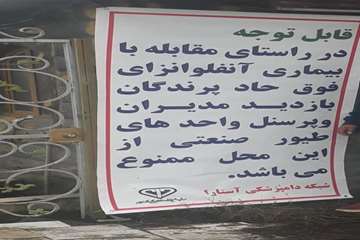 قابل توجه
در راستای مقابله با
بیماری آنفلوانزای
فوق حاد پرندگان
بازدید مدیران
وپرسنل واحد های
طیور صنعتی از
این محل ممنوع
می باشد.
شبکه دامپزشکی آستارا